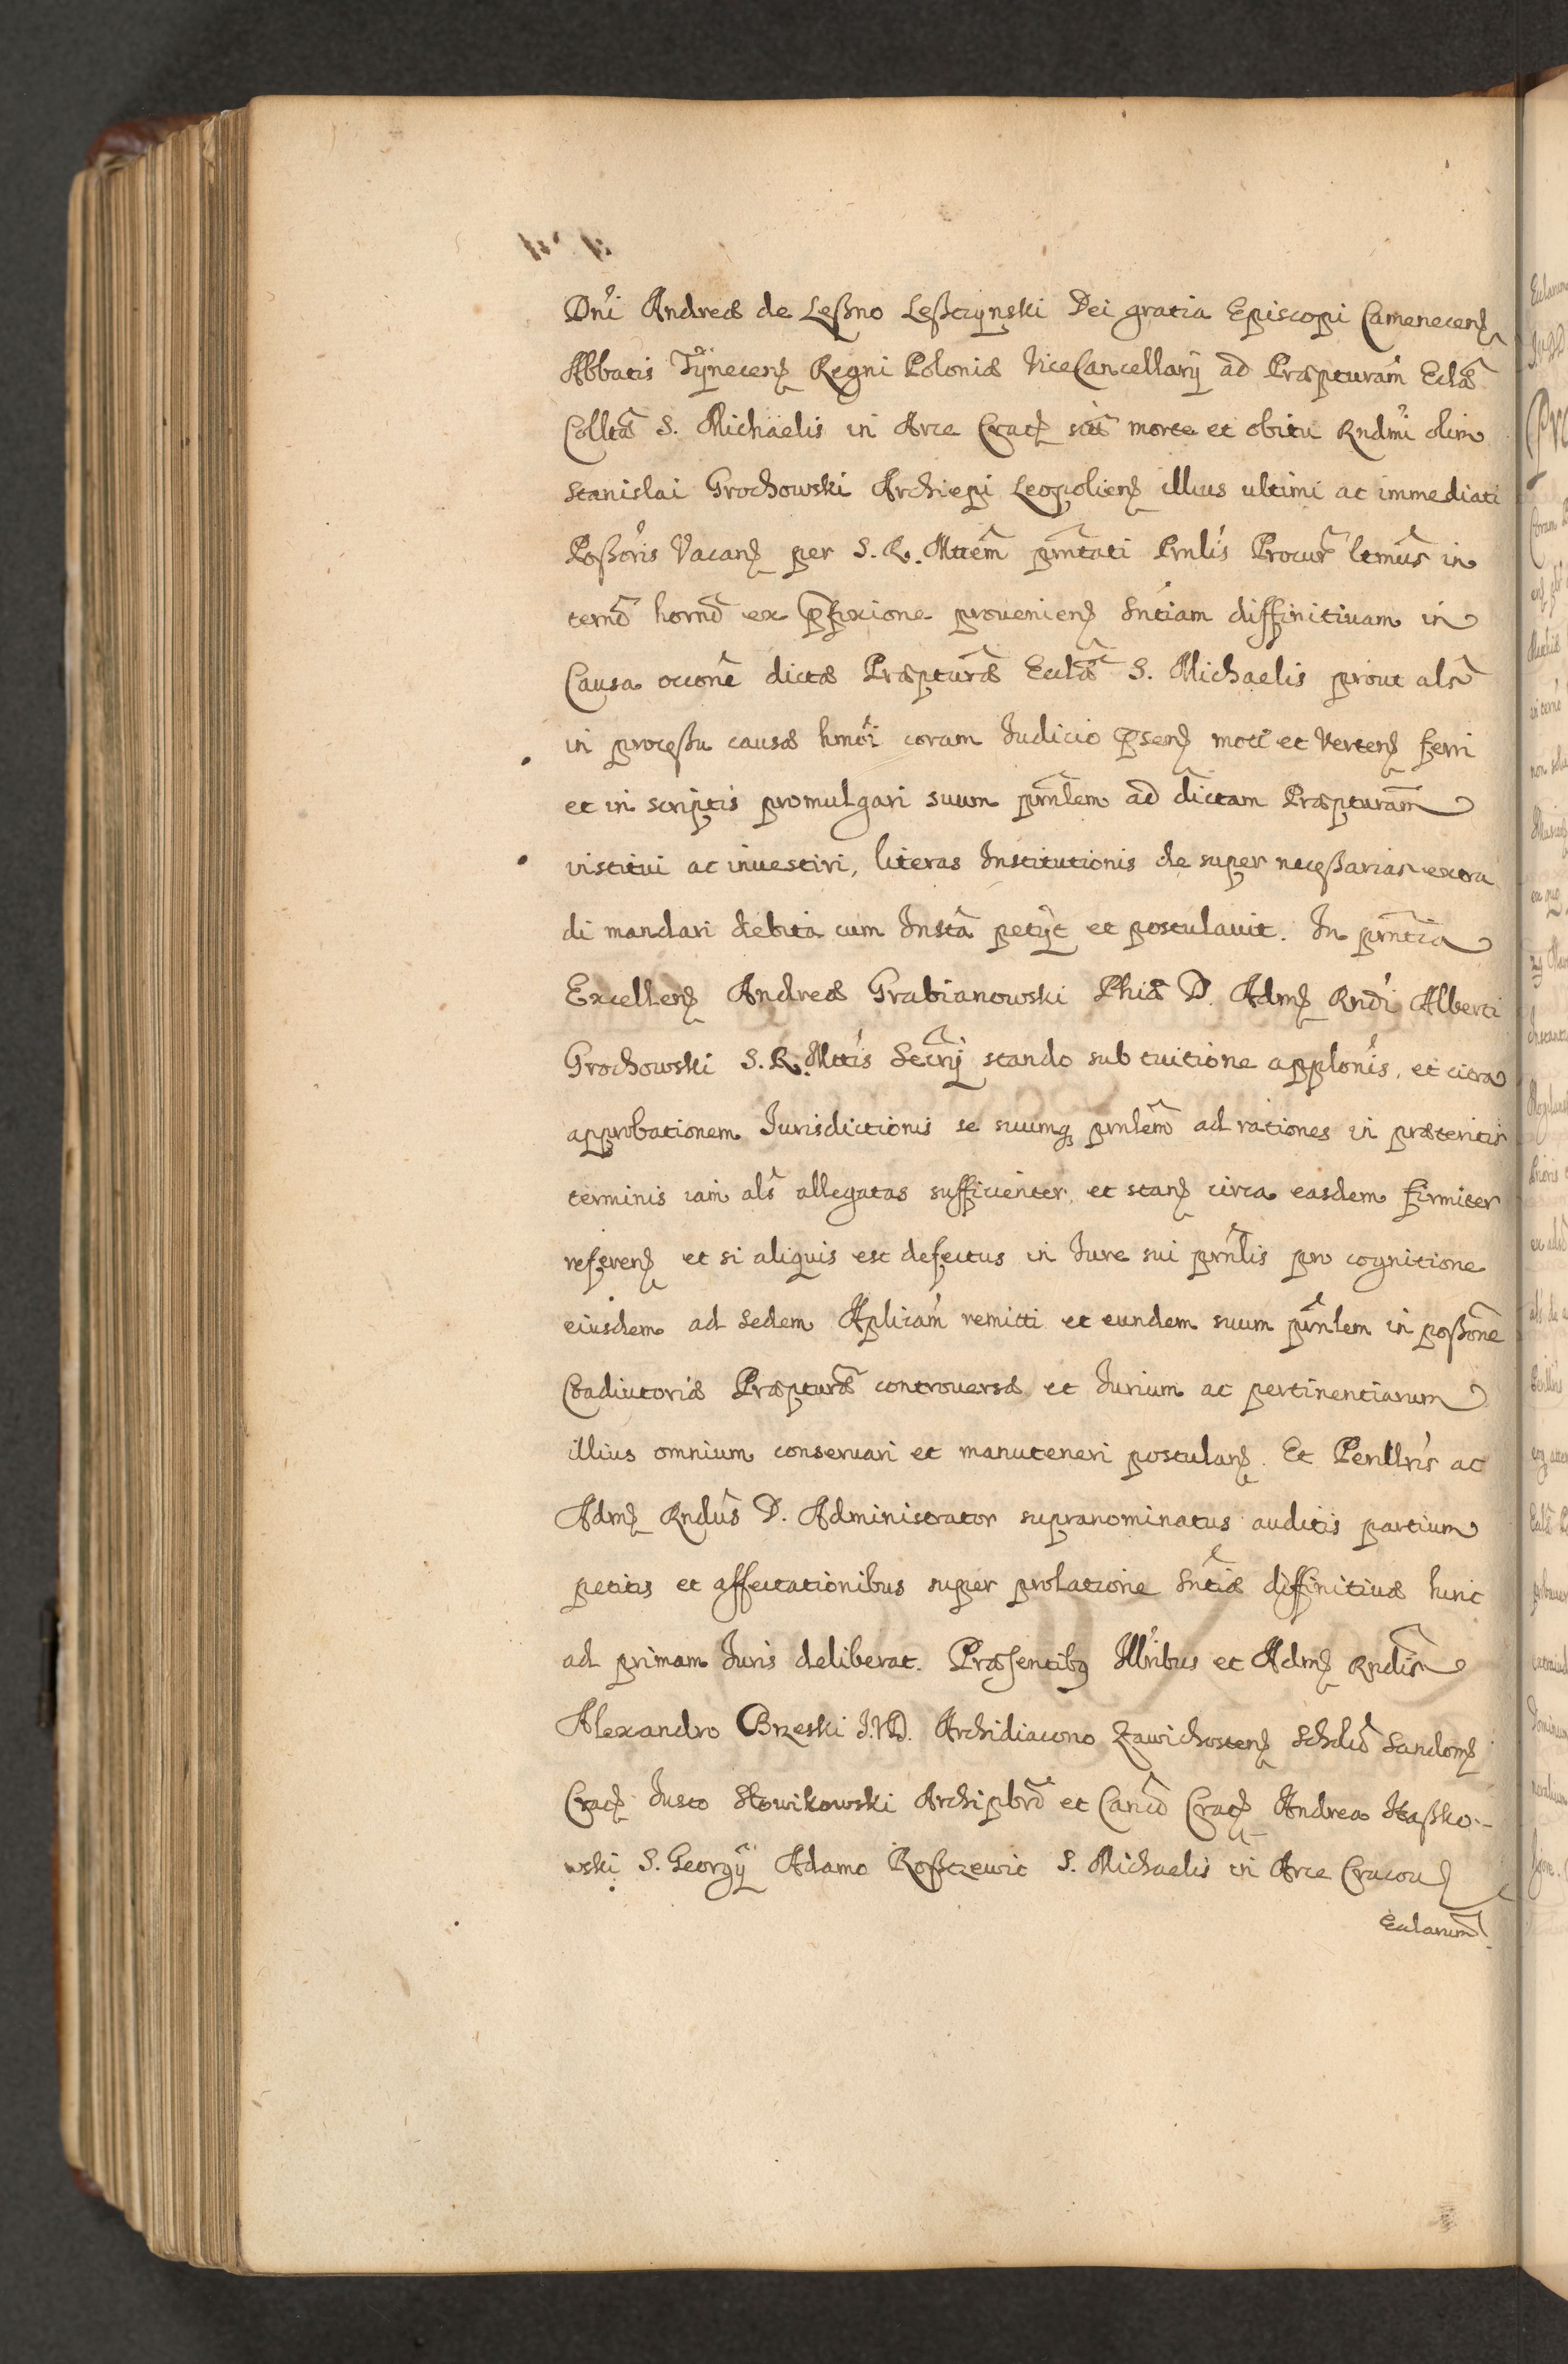 Dni Andreæ de Leßno Leßczynski Dei gratia Episcopi Camenecens
Abbatis Tÿnecens Regni Poloniæ ViceCancellarÿ ad Præpturam Eclæ
Colltæ S. Michaelis in Arce Crac morte et obitu Rndmi olim
Stanislai Grochowski Archiepi Leopoliens illius ultimi ac immediati
Poßoris Vacan per S. R. Mttem prntati Prnlis Procur ltmus in
termo horno ex pfixione provenien Sntiam diffinitivam in
Causa occone dictæ Præpturæ Eclæ S. Michaelis prout als
in proceßu causæ hmoi coram Iudicio psen motæ et Verten ferri
et in scriptis promulgari suum prnlem ad dictam Præpturam
institui ac investiri, literas Institutionis de super neceßarias extra
di mandari debita cum Insta petÿt et postulavit. In prntia
Excellen Andreæ Grabianowski Phiæ D. Adm Rndi Alberti
Grochowski S. R. Mttis Secrÿ stando sub tuitione applonis, et citra
approbationem Iurisdictionis se suumq prnlem ad rationes in præteritis
terminis iam als allegatas sufficienter, et stan circa easdem firmiter
referen et si aliquis est defectus in Iure sui prnlis pro cognitione
eiusdem ad Sedem Aplicam remitti et eundem suum prnlem in poßone
Coadiutoriæ Præpturæ controversæ et Iurium ac pertinentiarum
illius omnium conservari et manuteneri postulan. Et Perllris ac
Adm Rndus D. Administrator supranominatus auditis partium
petitis et affectationibus super prolatione Sntiæ diffinitivæ hinc
ad primam Iuris deliberat. Præsentibq Illribus et Adm Rndis
Alexandro Brzeski I.V.D. Archidiacono Zawichosten Schlco Sandom
Crac Iusto Słowikowski Archipbro et Canco Crac Andrea Kaßko-
wski S. Georgÿ Adamo Roßczewic S. Michaelis in Arce Cracov
Eclarum